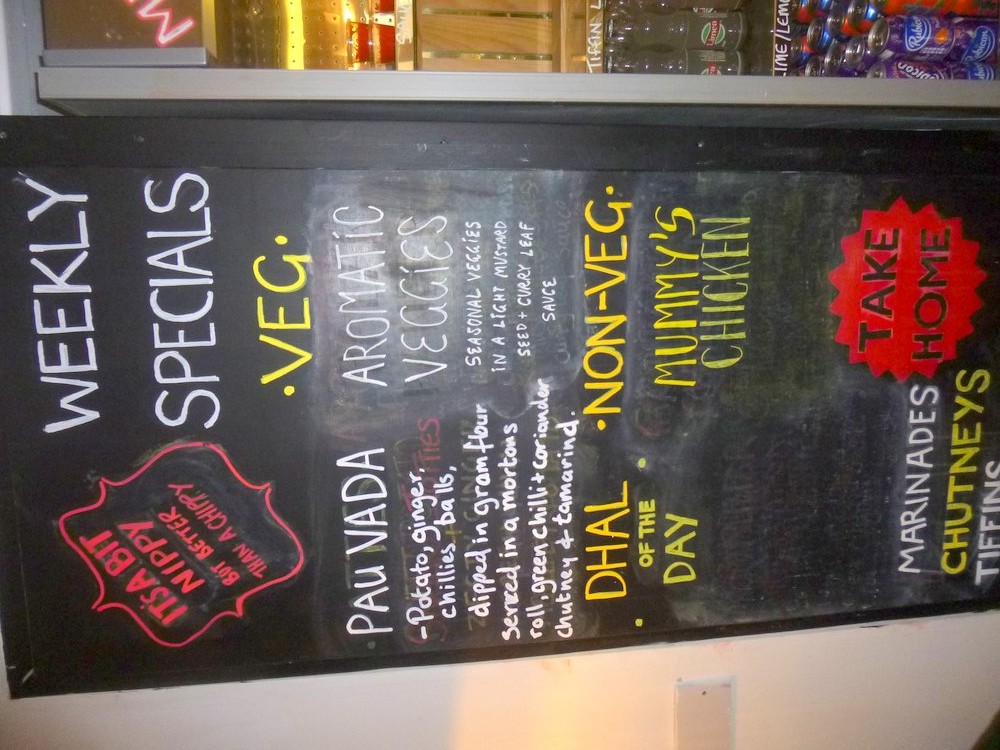 WEEKLY
SPECIALS
IT'S A BIT
NIPPY
BUT BETTER
THAN A CHIPPY
·VEG·
PAU VADA
-Potato, ginger,
chillies balls,
dipped in gram flour
Serviced in a mortons
roll, green chilli + coriander
chutney & tamarind.
AROMATIC
VEGGIES
SEASONAL VEGGIES
IN A LIGHT MUSTARD
SEED + CURRY LEAF
SAUCE
·DHAL·
OF THE
DAY
·NON-VEG·
MUMMY'S
CHICKEN
TAKE
HOME
MARINADES
CHUTNEYS
TIFFINS
TIFFIN
LIME/LEMO
Rubicon